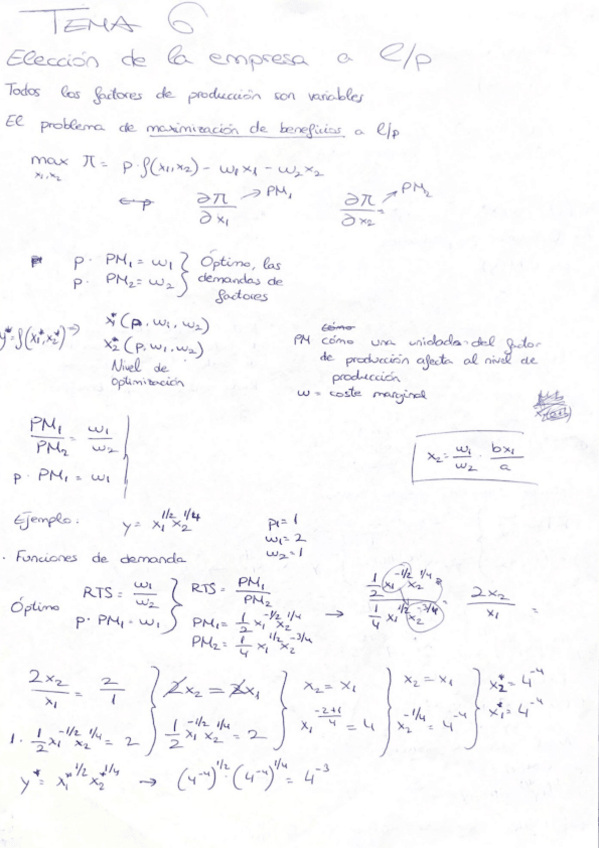 TEMA 6
Elección de la empresa a l/p
Todos los factores de producción son variables
El problema de maximización de beneficios a l/p
max π = p·f(x₁,x₂) - w₁x₁ - w₂x₂
x₁,x₂
∂π/∂x₁ → PM₁ ∂π/∂x₂ → PM₂
p· PM₁ = w₁ } Óptimo, las
p· PM₂ = w₂ } demandas de
factores
y* = f(x₁*,x₂*) → x₁*(p, w₁, w₂)
x₂*(p, w₁, w₂)
Nivel de
optimización
PM cómo una unidad del factor
de producción afecta al nivel de
producción
w = coste marginal
PM₁/PM₂ = w₁/w₂
p· PM₁ = w₁
x₂ = w₁/w₂ · bx₁/a
Ejemplo: y = x₁^1/2 x₂^1/4 p₁ = 1
w₁ = 2
w₂ = 1
· Funciones de demanda
Óptimo RTS = w₁/w₂ } RTS = PM₁/PM₂
p· PM₁ = w₁ } PM₁ = 1/2 x₁^-1/2 x₂^1/4
PM₂ = 1/4 x₁^1/2 x₂^-3/4
→ (1/2 x₁^-1/2 x₂^1/4)/(1/4 x₁^1/2 x₂^-3/4) = 2x₂/x₁ =
2x₂/x₁ = 2/1 } 2x₂ = 2x₁ } x₂ = x₁ } x₂ = x₁ } x₂* = 4^-4
1· 1/2 x₁^-1/2 x₂^1/4 = 2 } 1/2 x₁^-1/2 x₂^1/4 = 2 } x₁^(-2+1)/4 = 4 } x₂^-1/4 = 4^-4 } x₁* = 4^-4
y* = x₁*^1/2 x₂*^1/4 → (4^-4)^1/2 · (4^-4)^1/4 = 4^-3